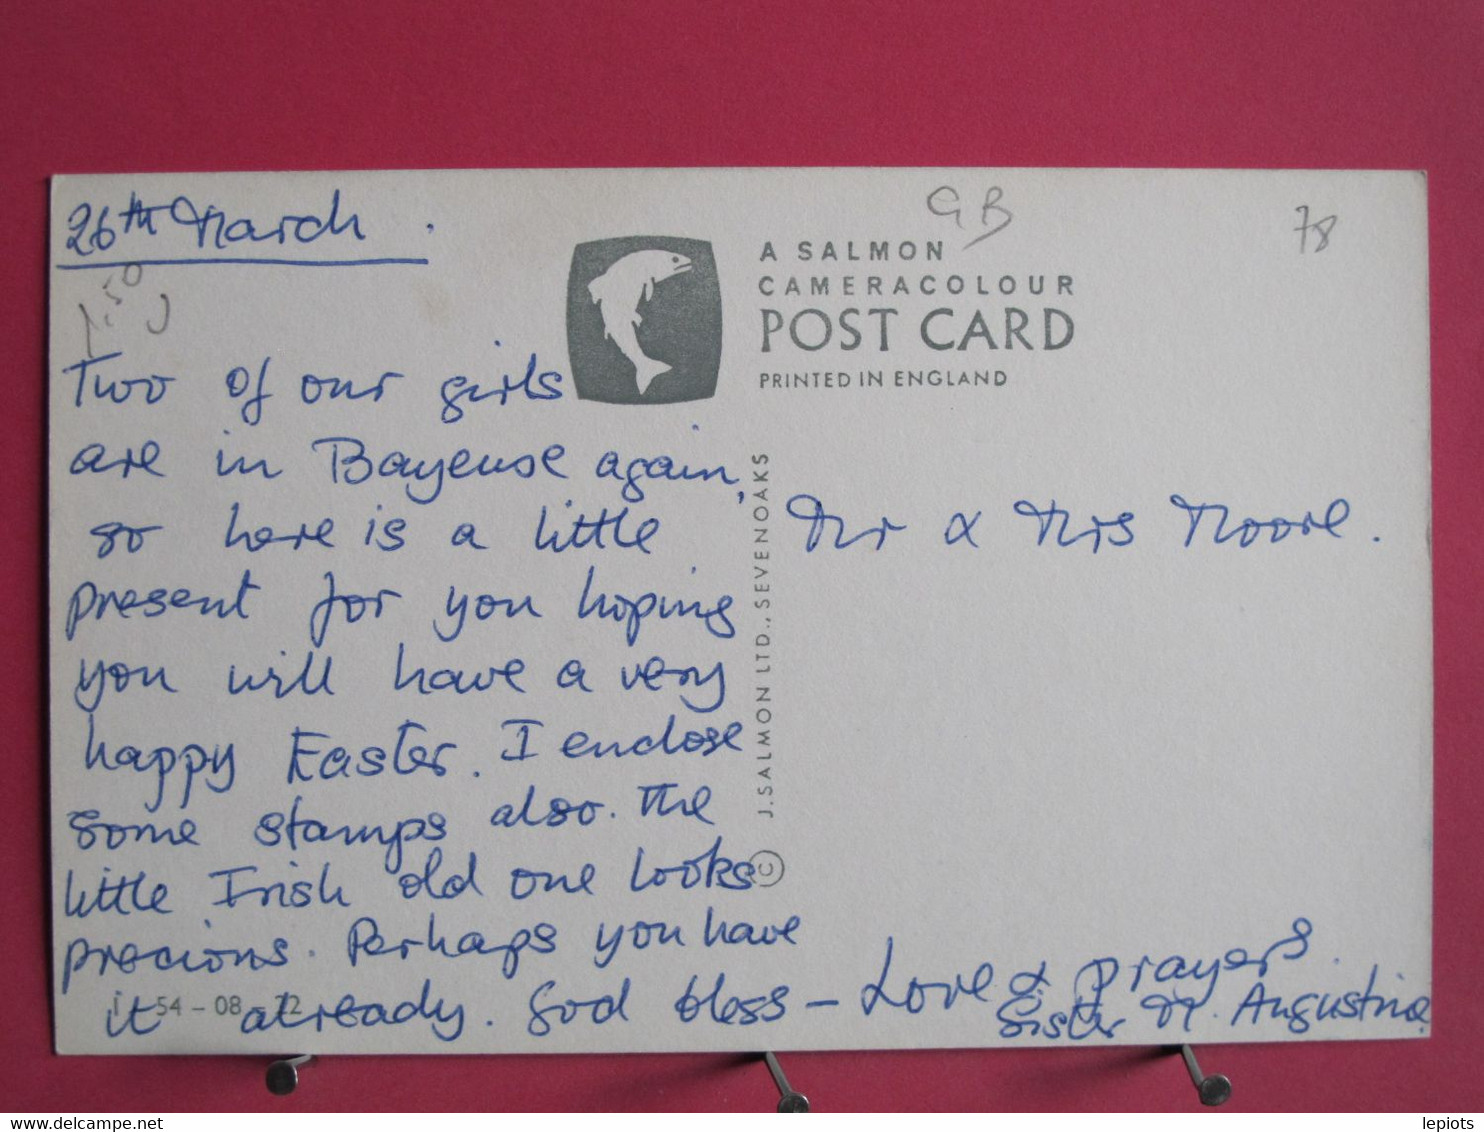 26th March.
1.50
Two of our girls
are in Bayeuse again,
so here is a little
present for you hoping
you will have a very
happy Easter. I enclose
some stamps also. The
little Irish old one looks
precious. Perhaps you have
it already. God bless – Love & prayers.
Sister M. Augustine.
54 - 08 - 72
GB
78
A SALMON
CAMERACOLOUR
POST CARD
PRINTED IN ENGLAND
© J. SALMON LTD., SEVENOAKS
Mr & Mrs Moore.
www.delcampe.net
lepiots